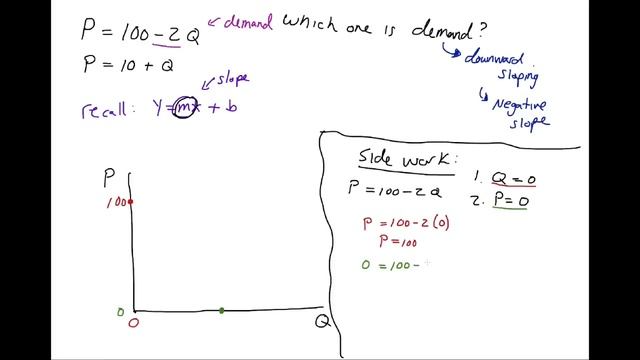 P = 100 - 2Q
demand
Which one is demand?
downward sloping
Negative slope
P = 10 + Q
slope
recall: Y = mx + b
Side work:
P = 100 - 2Q
1. Q = 0
2. P = 0
P = 100 - 2(0)
P = 100
0 = 100 -
P
100
0
0
Q